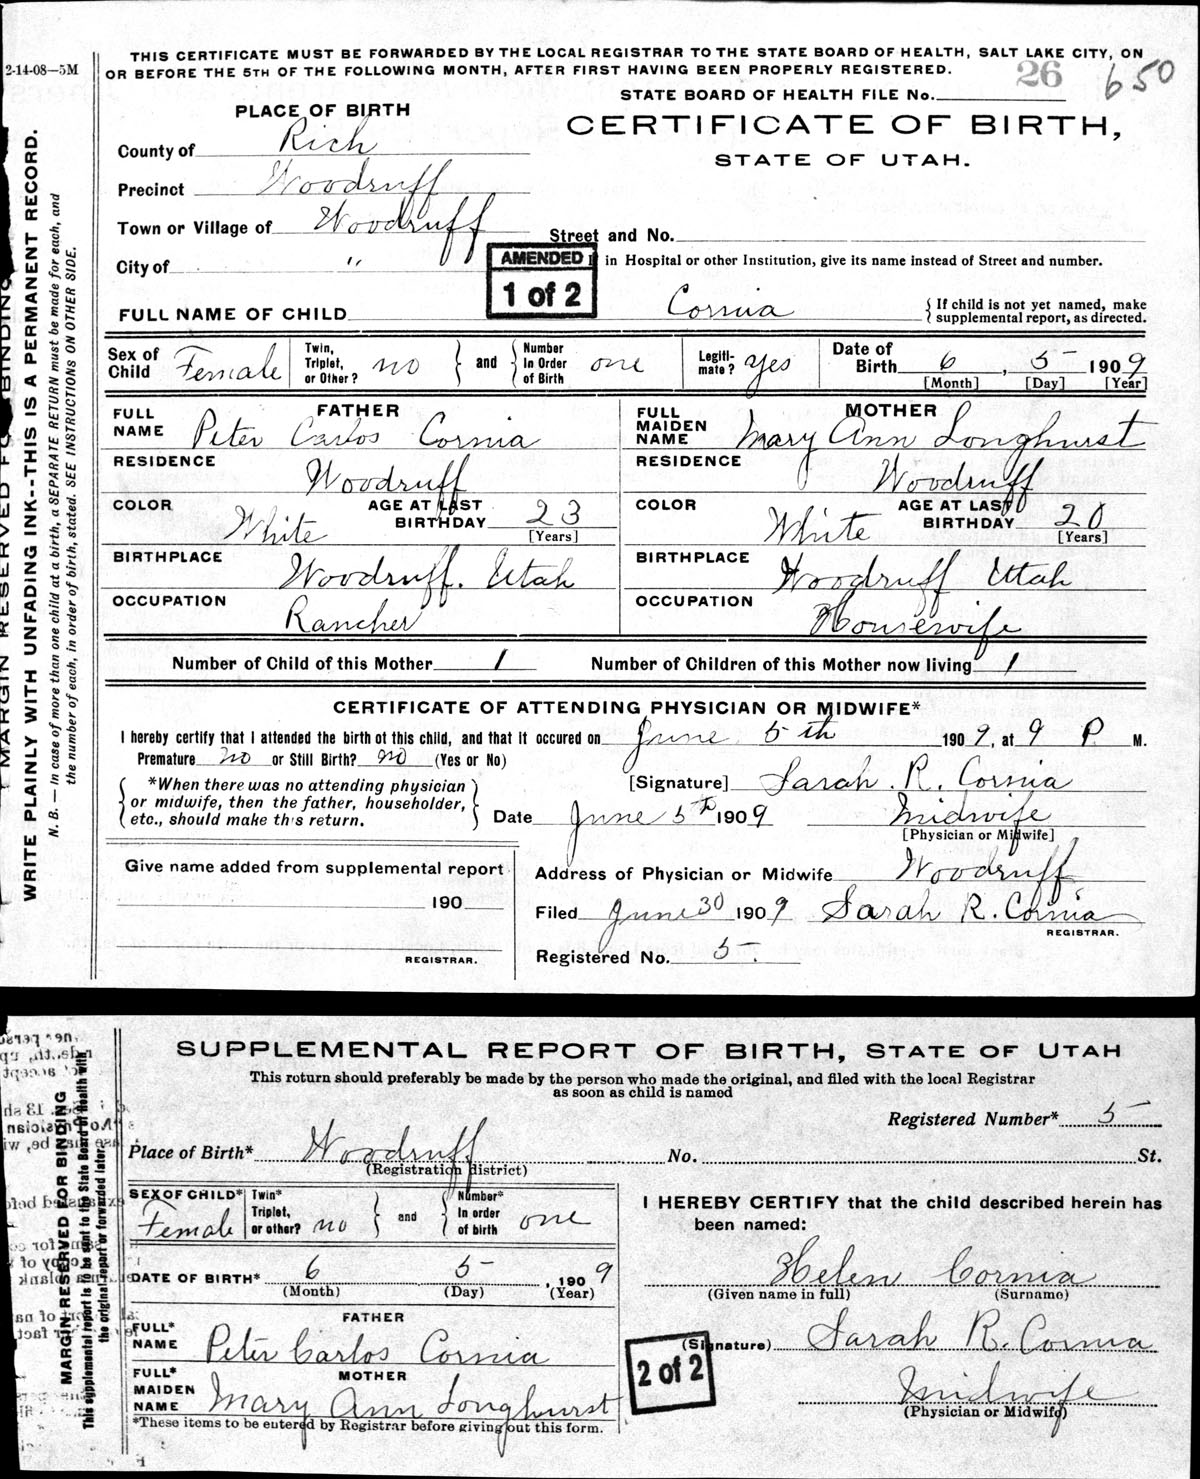 2-14-08—5M
THIS CERTIFICATE MUST BE FORWARDED BY THE LOCAL REGISTRAR TO THE STATE BOARD OF HEALTH, SALT LAKE CITY, ON
OR BEFORE THE 5TH OF THE FOLLOWING MONTH, AFTER FIRST HAVING BEEN PROPERLY REGISTERED.
STATE BOARD OF HEALTH FILE No. 26
650
PLACE OF BIRTH
CERTIFICATE OF BIRTH,
STATE OF UTAH.
County of Rich
Precinct Woodruff
Town or Village of Woodruff
Street and No.
City of "
AMENDED
1 of 2
in Hospital or other Institution, give its name instead of Street and number.
FULL NAME OF CHILD Cornia
{If child is not yet named, make
supplemental report, as directed.
Sex of Child Female
Twin, Triplet, or Other? no
and
Number In Order of Birth one
Legiti-mate? yes
Date of Birth 6, 5 1909
[Month] [Day] [Year]
FATHER
FULL NAME Peter Carlos Cornia
RESIDENCE Woodruff
COLOR White
AGE AT LAST BIRTHDAY 23
[Years]
BIRTHPLACE Woodruff. Utah
OCCUPATION Rancher
MOTHER
FULL MAIDEN NAME Mary Ann Longhurst
RESIDENCE Woodruff
COLOR White
AGE AT LAST BIRTHDAY 20
[Years]
BIRTHPLACE Woodruff Utah
OCCUPATION Housewife
Number of Child of this Mother 1 Number of Children of this Mother now living 1
CERTIFICATE OF ATTENDING PHYSICIAN OR MIDWIFE*
I hereby certify that I attended the birth of this child, and that it occured on June 5th 1909, at 9 P. M.
Premature no or Still Birth? no (Yes or No)
*When there was no attending physician
or midwife, then the father, householder,
etc., should make this return.
[Signature] Sarah. R. Cornia
Date June 5th 1909 Midwife
[Physician or Midwife]
Give name added from supplemental report
190
REGISTRAR.
Address of Physician or Midwife Woodruff
Filed June 30 1909 Sarah R. Cornia
REGISTRAR.
Registered No. 5.
MARGIN RESERVED FOR BINDING
WRITE PLAINLY WITH UNFADING INK--THIS IS A PERMANENT RECORD.
N. B. — In case of more than one child at a birth, a SEPARATE RETURN must be made for each, and
the number of each, in order of birth, stated. SEE INSTRUCTIONS ON OTHER SIDE.
SUPPLEMENTAL REPORT OF BIRTH, STATE OF UTAH
This return should preferably be made by the person who made the original, and filed with the local Registrar
as soon as child is named
Registered Number* 5
Place of Birth* Woodruff No. St.
(Registration district)
SEX OF CHILD* Female
Twin* Triplet, or other? no
and
Number* In order of birth one
DATE OF BIRTH* 6 5, 1909
(Month) (Day) (Year)
FATHER
FULL* NAME Peter Carlos Cornia
MOTHER
FULL* MAIDEN NAME Mary Ann Longhurst
*These items to be entered by Registrar before giving out this form.
I HEREBY CERTIFY that the child described herein has
been named:
Helen Cornia
(Given name in full) (Surname)
(Signature) Sarah R. Cornia
2 of 2
Midwife
(Physician or Midwife)
MARGIN RESERVED FOR BINDING
This supplemental report is to be sent to the State Board of Health with
the original report or forwarded later.